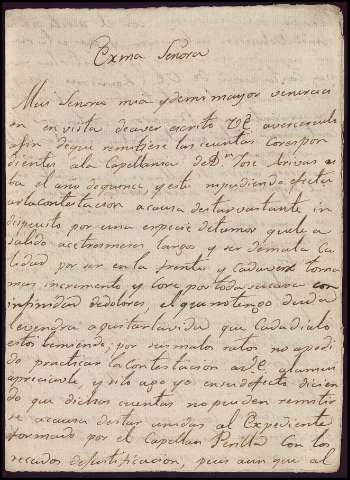 Exma Señora
Mui Señora mia y demi mayor veneracion
en vista de aver escrito VE aver cerculo
afin deque remitiese las cuentas corespon
dientes ala Capellania de Dn Jose Arivas
el año de quince, y este impediendo efectu
ar la contestacion acausa destar vastante in
dispuesto por una especie detumor que le a
salido acetres meses largos y ser demala ca
lidad por ser en la frente y cadavez toma
mas incremento y core por toda su cara con
infinidad dedolores, el que no tengo duda
levendra aquitar la vida que cada dia lo
estoi temiendo; por sus malos ratos no apodi
do practicar la contestacion a VE alamui
apreciable, y si lo ago yo en su defecto dicien
do que dichas cuentas no pueden remitir
se acausa destar unidas al Expediente
formado por el Capellan Penilla con los
recados dejustificacion, pues aunque al